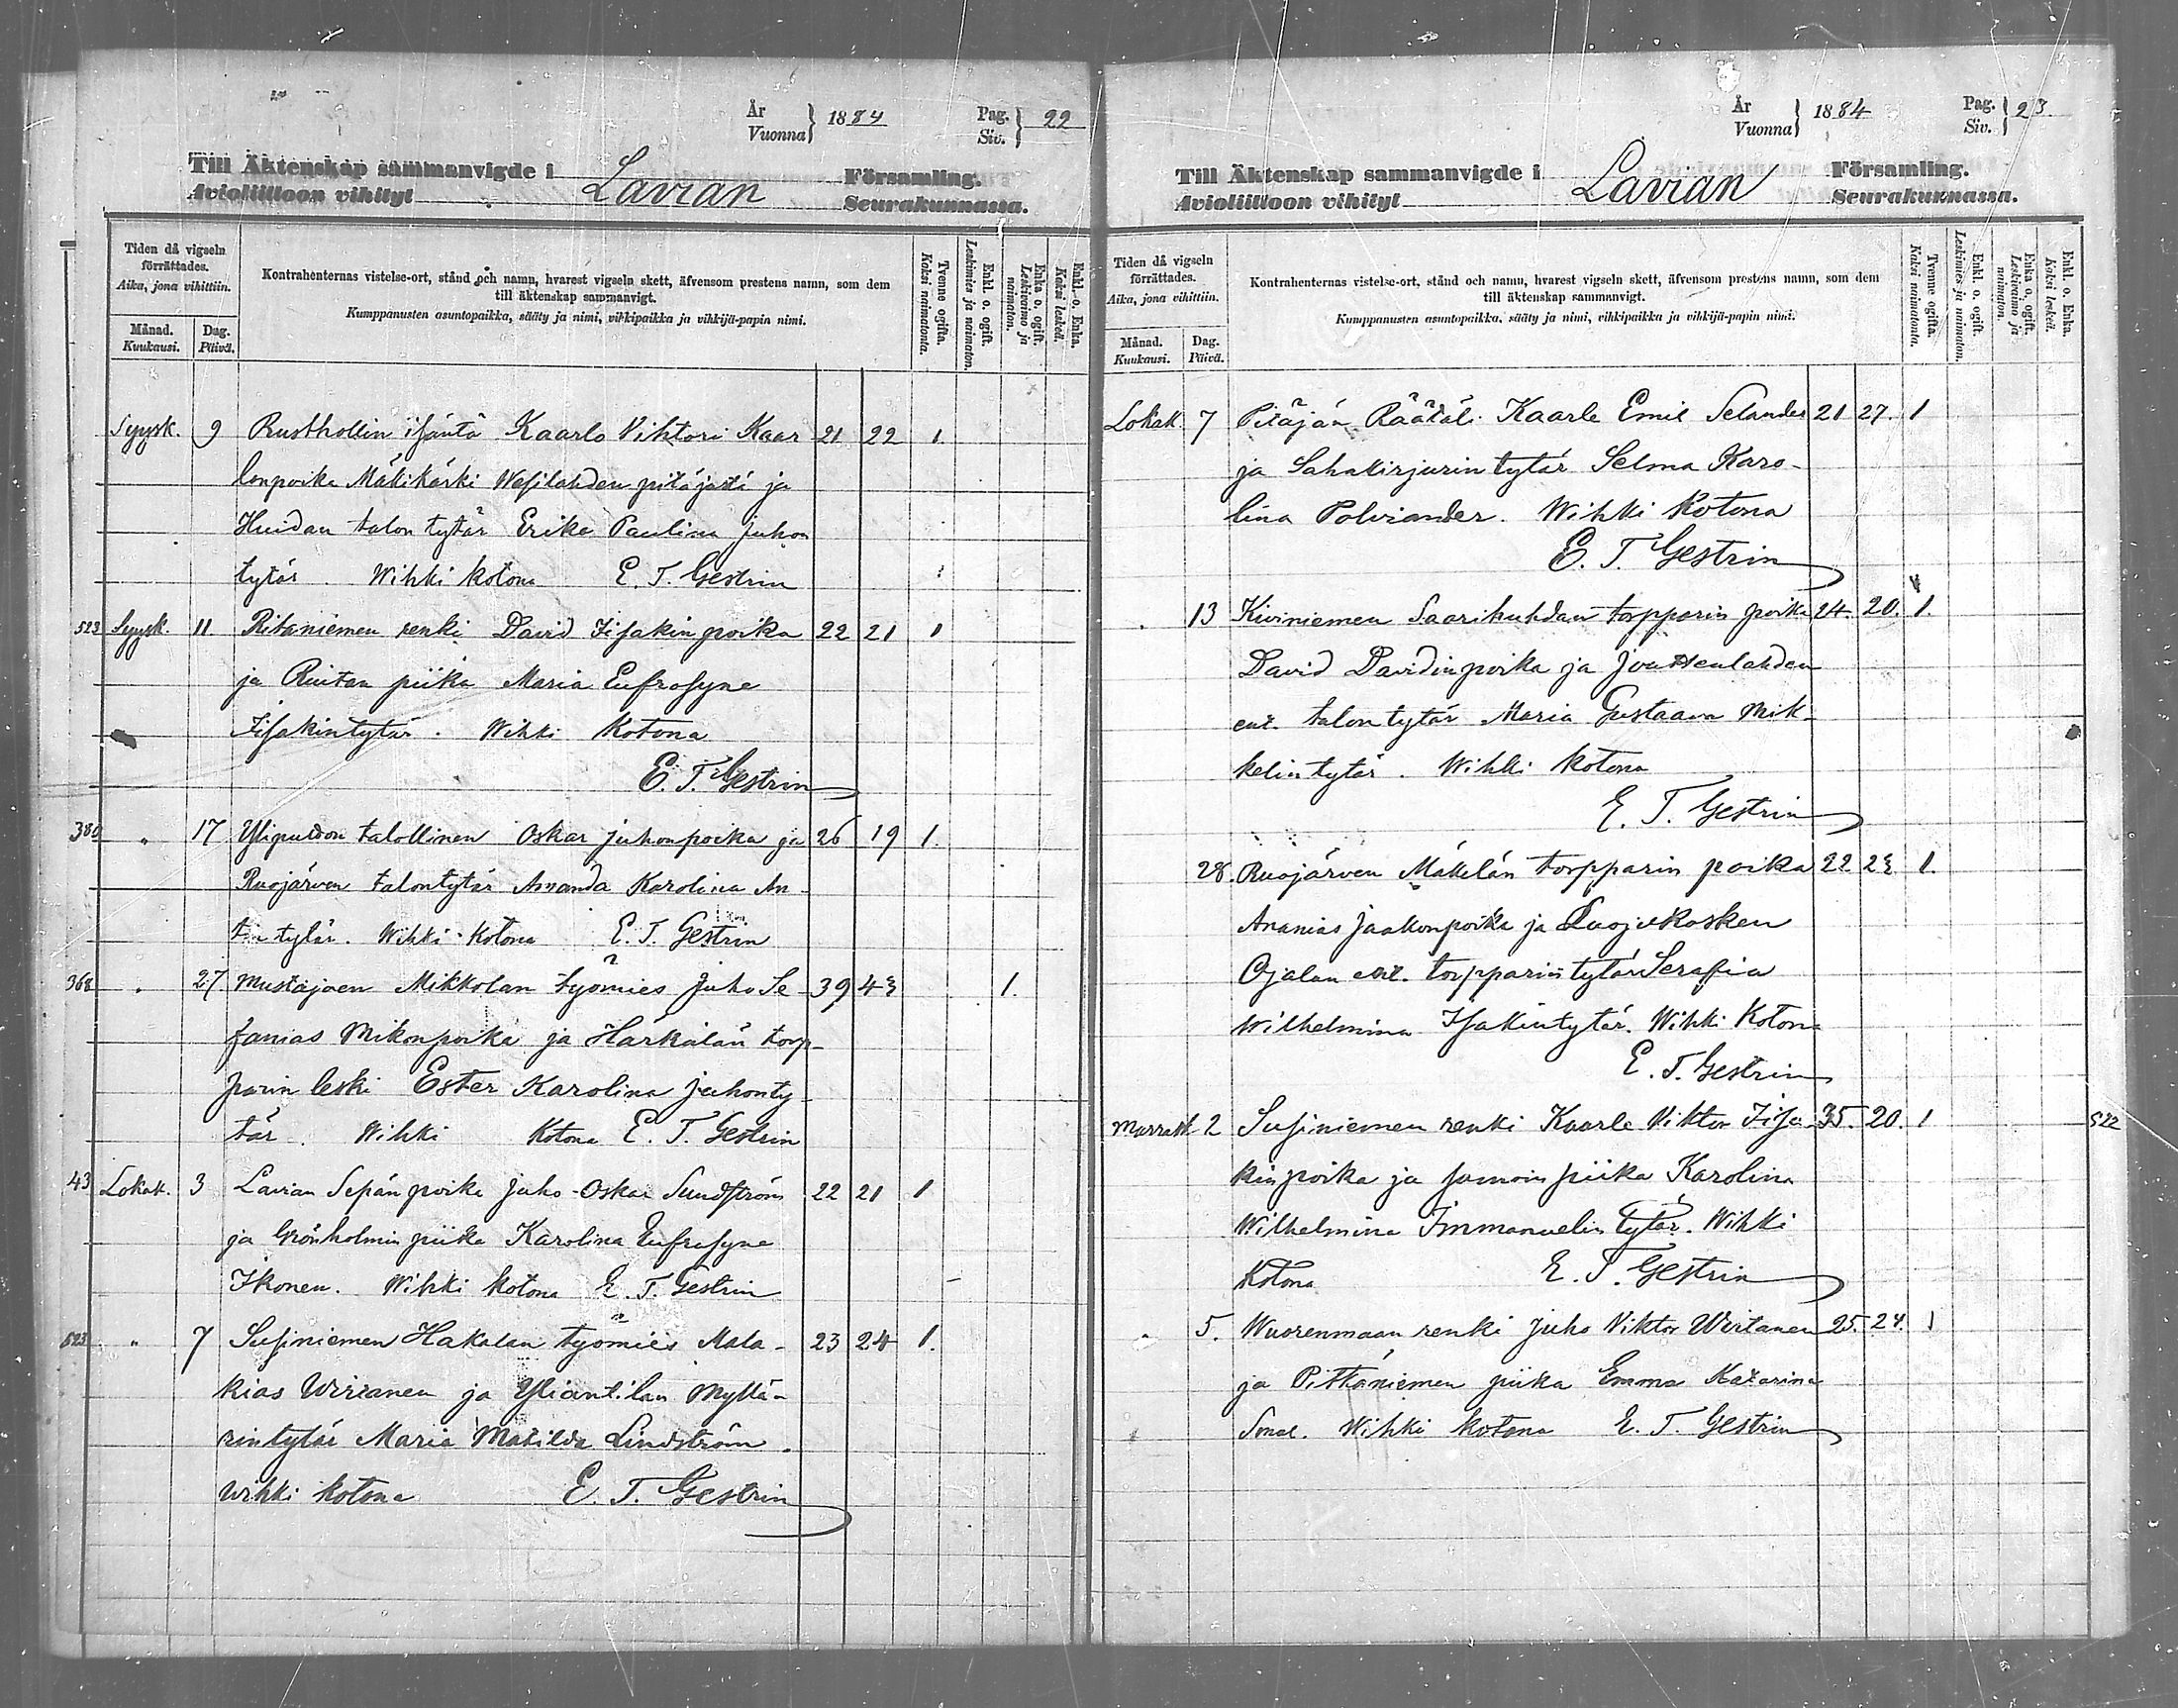 År
Vuonna } 1884 Pag.
Siv. } 22
Till Äktenskap sammanvigde i Lavian Församling.
Avioliittoon vihityt Seurakunnassa.
Tiden då vigseln förrättades.
Aika, jona vihittiin.
Månad.
Kuukausi.
Dag.
Päivä.
Kontrahenternas vistelse-ort, stånd och namn, hvarest vigseln skett, äfvensom prestens namn, som dem
till äktenskap sammanvigt.
Kumppanusten asuntopaikka, sääty ja nimi, vihkipaikka ja vihkijä-papin nimi.
Tvenne ogifta.
Kaksi naimatonta.
Enkl. o. ogift.
Leskimies ja naimaton.
Enka o. ogift.
Leskivaimo ja naimaton.
Enkl. o. Enka.
Kaksi leskeä.
Syysk. 9 Rusthollin isäntä Kaarlo Vihtori Kaar 21 22 1.
lonpoika Mäkikärki Wesilahden pitäjästä ja
Huidan talon tytär Erika Paulina Juhon
tytär. Wihki kotona E. T. Gestrin
523 Syysk. 11 Ritaniemen renki David Iisakin poika 22 21 1
ja Riutan piika Maria Eufrosyne
Iisakintytär. Wihki kotona
E. T. Gestrin
380 " 17 Ylipuldon talollinen Oskar Juhonpoika ja 26 19 1.
Ruojärven talontytär Amanda Karolina An-
tin tytär. Wihki kotona E. T. Gestrin
368 " 27 Mustajoen Mikkolan työmies Juho Se- 39 43 1.
fanias Mikonpoika ja Härkälän torp-
parin leski Ester Karolina Juhonty-
tär. Wihki kotona E. T. Gestrin
43 Lokak. 3 Lavian Sepän poika Juho Oskar Sundström 22 21 1
ja Grönholmin piika Karolina Eufrosyne
Ikonen. Wihki kotona E. T. Gestrin
523 " 7 Susiniemen Hakalan työmies Mala- 23 24 1.
kias Wirtanen ja Yliantilan Myllä-
rintytär Maria Matilda Lindström.
Wihki kotona E. T. Gestrin
År
Vuonna } 1884 Pag.
Siv. } 23.
Till Äktenskap sammanvigde i Lavian Församling.
Avioliittoon vihityt Seurakunnassa.
Tiden då vigseln förrättades.
Aika, jona vihittiin.
Månad.
Kuukausi.
Dag.
Päivä.
Kontrahenternas vistelse-ort, stånd och namn, hvarest vigseln skett, äfvensom prestens namn, som dem
till äktenskap sammanvigt.
Kumppanusten asuntopaikka, sääty ja nimi, vihkipaikka ja vihkijä-papin nimi.
Tvenne ogifta.
Kaksi naimatonta.
Enkl. o. ogift.
Leskimies ja naimaton.
Enka o. ogift.
Leskivaimo ja naimaton.
Enkl. o. Enka.
Kaksi leskeä.
Lokak. 7 Pitäjän Räätäli Kaarle Emil Selander 21 27. 1
ja Sahakirjurin tytär Selma Karo-
lina Polviander. Wihki kotona
E. T. Gestrin
" 13 Kiviniemen Saarihuhdan torpparin poika 24. 20. 1.
David Davidinpoika ja Jouttenlahden
ent. talon tytär Maria Gustaava Mik-
kelin tytär. Wihki kotona
E. T. Gestrin
28. Ruojärven Mäkilän torpparin poika 22 23 1.
Ananias Jaakonpoika ja
Ojalan ent. torpparin tytär Serafia
Wilhelmina Isakintytär. Wihki kotona
E. T. Gestrin
Marrask. 2 Susiniemen renki Kaarle Viktor Iisa- 35. 20. 1 522
kinpoika ja samoin piika Karolina
Wilhelmina Immanuelin tytär. Wihki
kotona E. T. Gestrin
" 5. Wuorenmaan renki Juho Viktor Wirtanen 25. 24. 1
ja Pitkäniemen piika Emma Katarina
Wihki kotona E. T. Gestrin